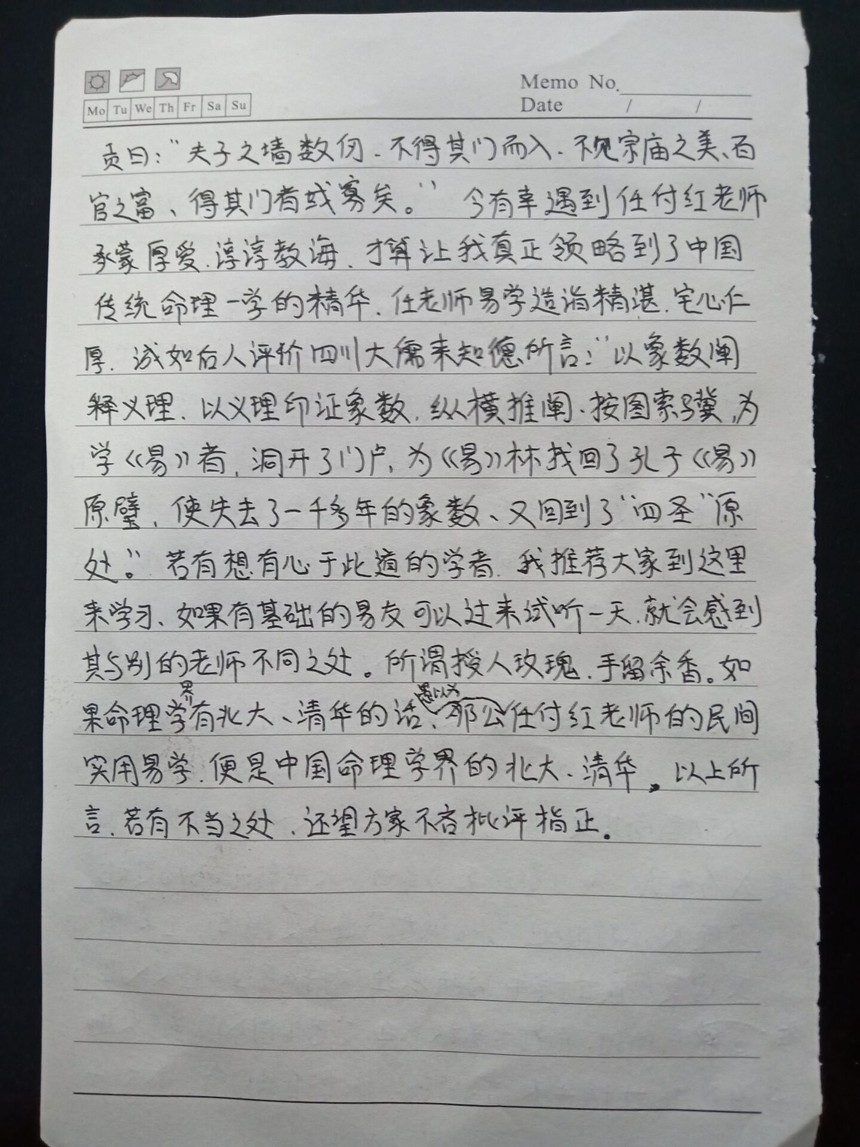 Memo No.
Mo Tu We Th Fr Sa Su
Date / /
贡曰：“夫子之墙数仞、不得其门而入、不见宗庙之美、百
官之富、得其门者或寡矣。”今有幸遇到任付红老师
承蒙厚爱、淳淳教海、才算让我真正领略到了中国
传统命理一学的精华、任老师易学造诣精湛、宅心仁
厚、诚如后人评价四川大儒来知德所言：“以象数阐
释义理、以义理印证象数、纵横推阐、按图索骥、为
学《易》者、洞开了门户、为《易》林找回了孔子《易》
原璧、使失去了一千多年的象数、又回到了“四圣”原
处”。若有想有心于此道的学者、我推荐大家到这里
来学习、如果有基础的易友可以过来试听一天、就会感到
其与别的老师不同之处。所谓授人玫瑰、手留余香。如
果命理学界有北大、清华的话、愚以为任付红老师的民间
实用易学、便是中国命理学界的北大、清华。以上所
言、若有不当之处、还望方家不吝批评指正。